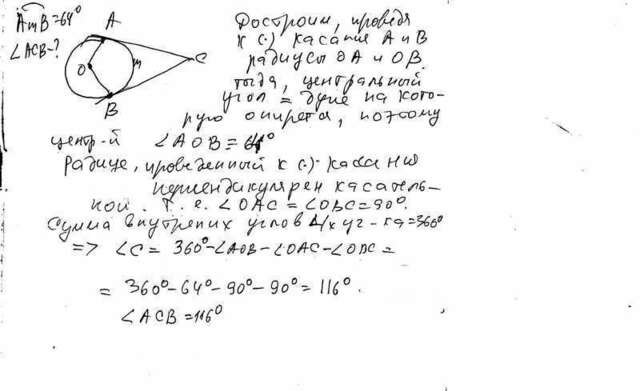 AmB=64°
∠ACB-?
A
O
m
C
B
Достроим, проведя
к (·) касания A и B
радиусы OA и OB.
тогда, центральный
угол = дуге на кото-
рую опирется, поэтому
центр-й ∠AOB=64°
Радиус, проведенный к (·) касания
перпендикулярен касатель-
ной. Т.е. ∠OAC=∠OBC=90°.
Сумма внутренних углов 4/х уг-ка=360°
=> ∠C= 360°-∠AOB-∠OAC-∠OBC=
= 360°-64°-90°-90°=116°.
∠ACB=116°